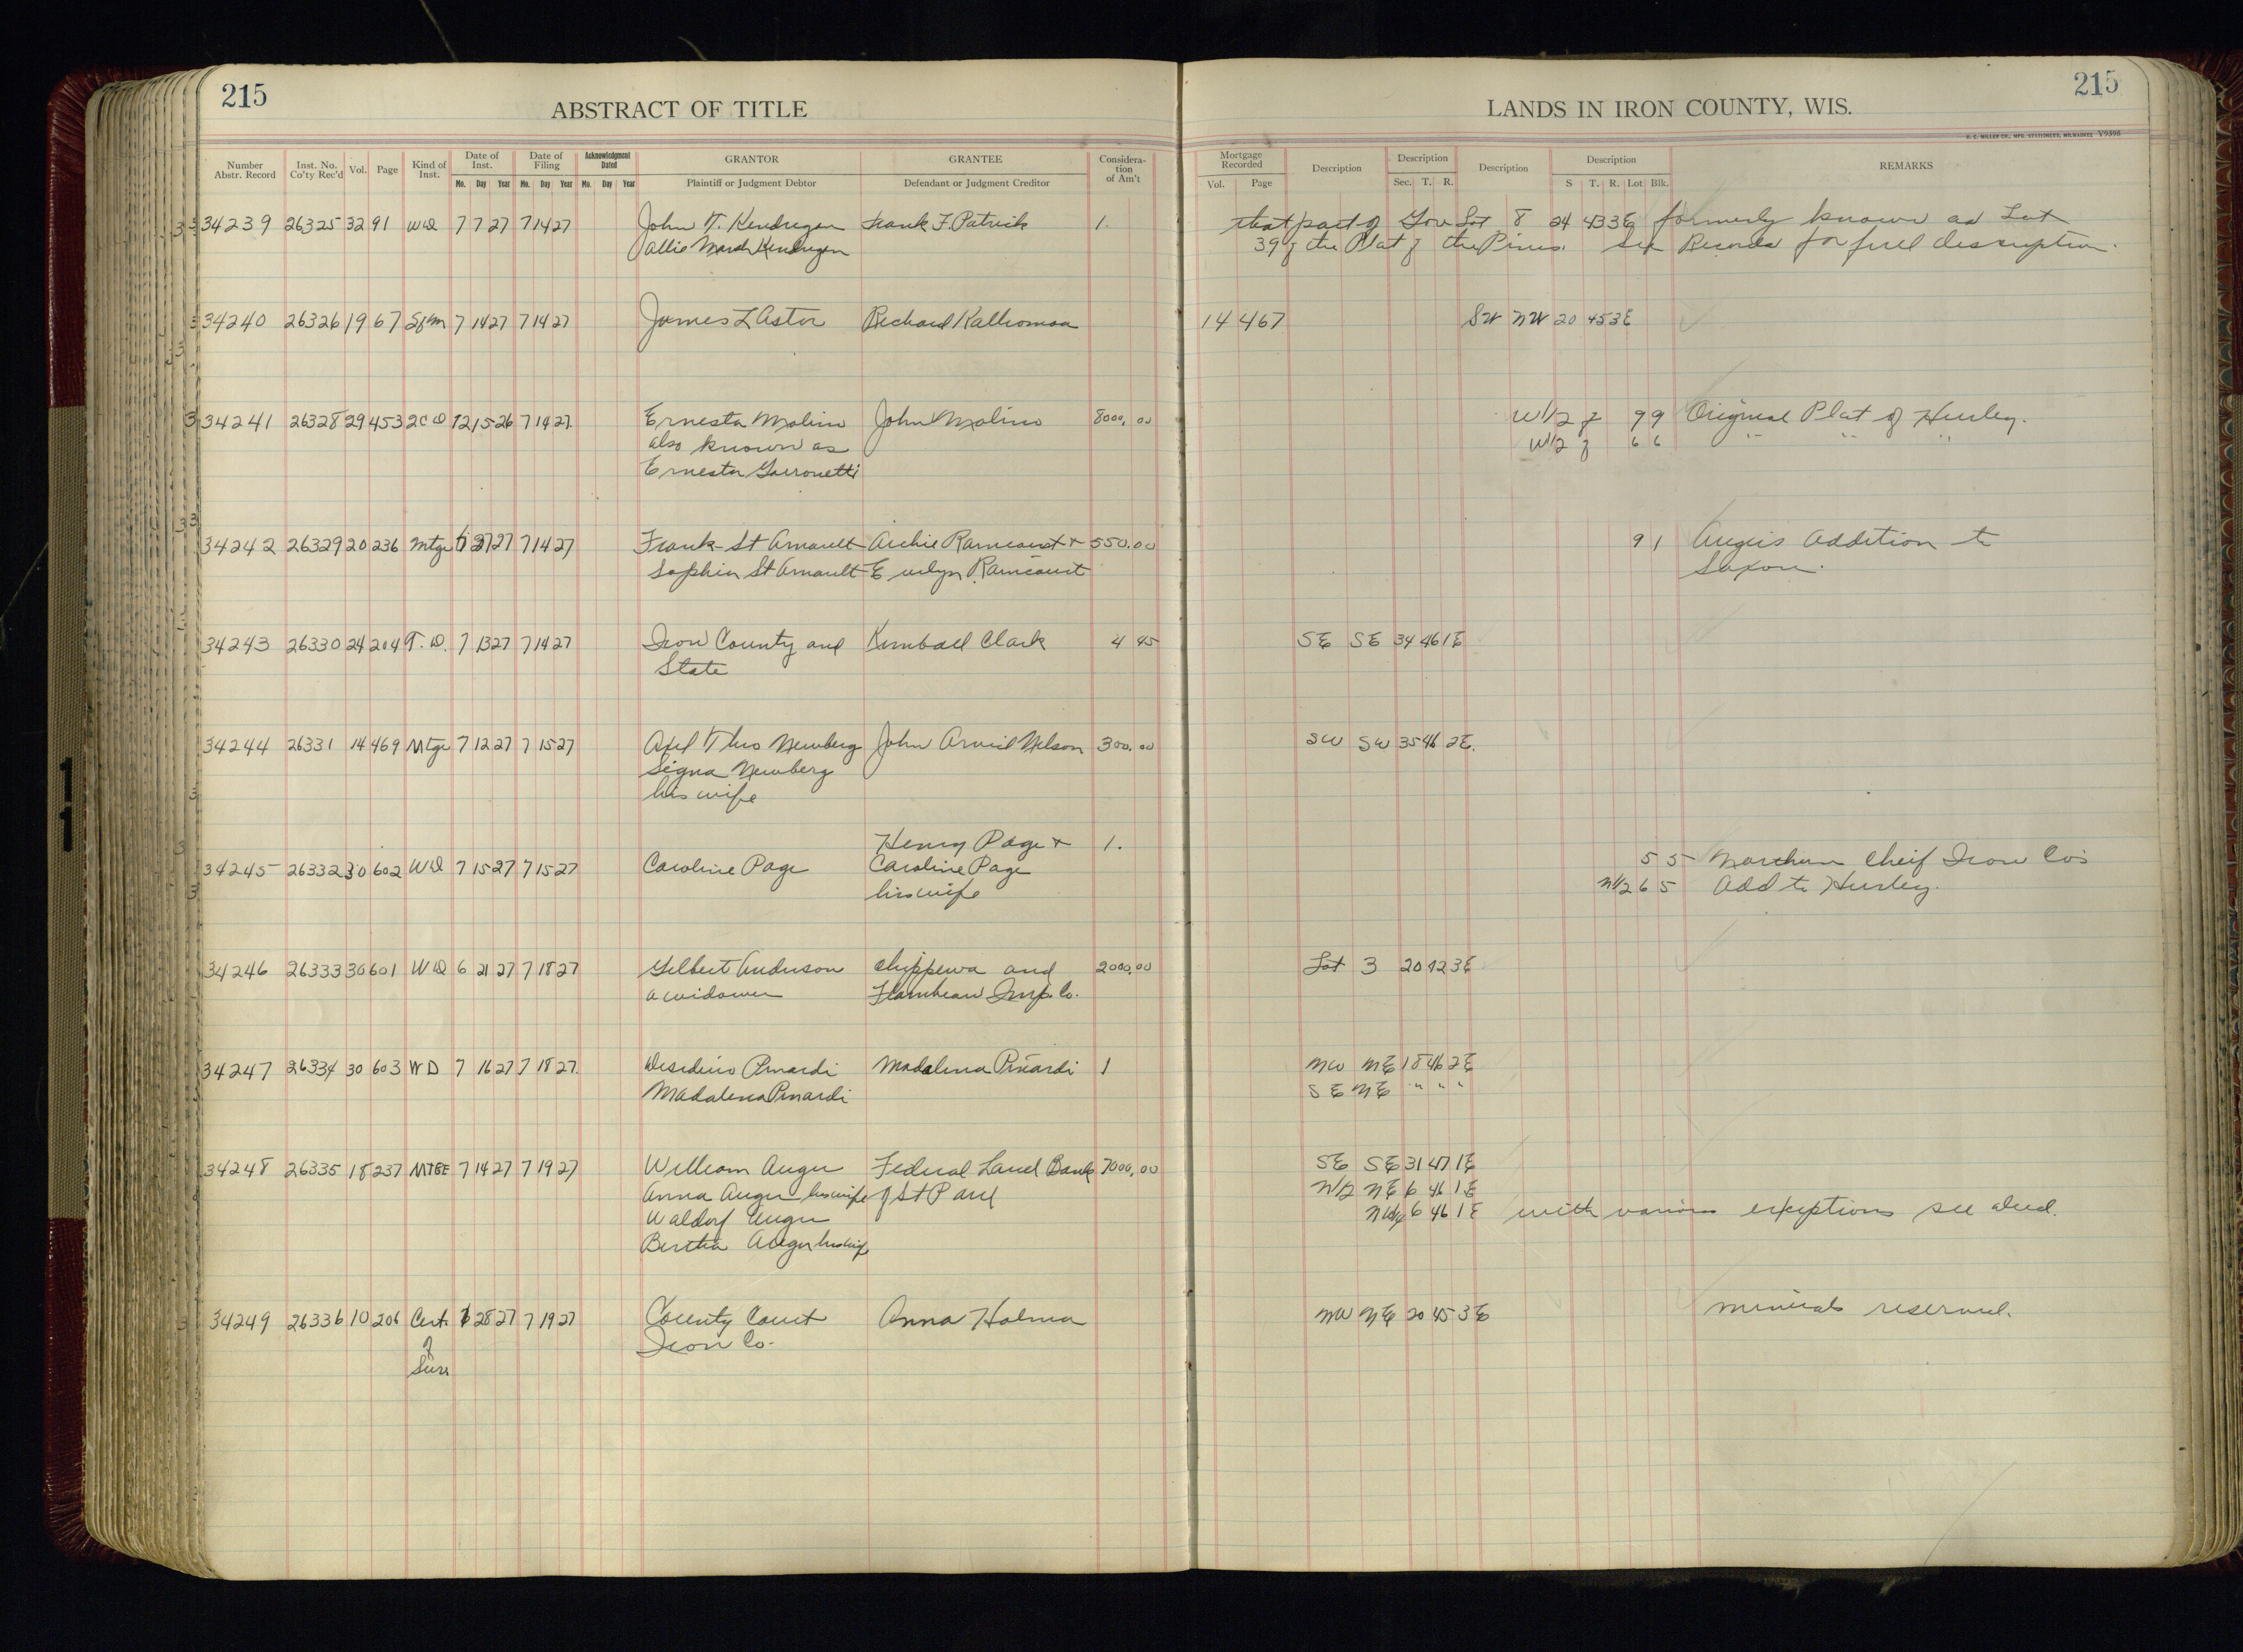 215
ABSTRACT OF TITLE
LANDS IN IRON COUNTY, WIS.
215
H. C. MILLER CO., MFG. STATIONERS, MILWAUKEE V9398
Number Abstr. Record Inst. No. Co'ty Rec'd Vol. Page Kind of Inst. Date of Inst. Mo. Day Year Date of Filing Mo. Day Year Acknowledgment Dated Mo. Day Year GRANTOR Plaintiff or Judgment Debtor GRANTEE Defendant or Judgment Creditor Considera-tion of Am't Mortgage Recorded Vol. Page Description Description Sec. T. R. Description Description S T. R. Lot Blk. REMARKS
34239 26325 32 91 WD 7 7 27 7 14 27 John T. Kendregan Frank F. Patrick 1. that part of Gov Lot 8 24 43 3E formerly known as Lot
Allie Marsh Kendregan 39 of the Plat of the Pines. See Records for full description.
34240 26326 19 67 Sfm 7 14 27 7 14 27 James L Astor Richard Kalliomaa 14 467 SW NW 20 45 3E
34241 26328 29 453 2CD 12 15 26 7 14 27 Ernesta Molino John Molino 8000.00 W1/2 of 9 9 Original Plat of Hurley.
also known as W1/2 of 6 6 " " "
Ernesta Garronetti
34242 26329 20 236 Mtge 27 27 7 14 27 Frank St Arnault Archie Raincourt + 550.00 9 1 Augers Addition to
Sophia St Arnault Evelyn Raincourt Saxon.
34243 26330 24 204 T.D. 7 13 27 7 14 27 Iron County and Kimball Clark 4 45 SE SE 34 46 1E
State
34244 26331 14 469 Mtge 7 12 27 7 15 27 Axel Theo Newberg John Arvid Nelson 300.00 SW SW 35 46 2E.
Signa Newberg
his wife
Henry Page + 1.
34245 26332 30 602 WD 7 15 27 7 15 27 Caroline Page Caroline Page 5 5 Northern Cheif Iron Co's
his wife N1/2 6 5 Add to Hurley.
34246 26333 30 601 WD 6 21 27 7 18 27 Gilbert Anderson Chippewa and 2000.00 Lot 3 20 42 3E
a widower Flambeau Imp. Co.
34247 26334 30 603 WD 7 16 27 7 18 27. Desiderio Pinardi Madalena Pinardi 1 NW NE 18 46 2E
Madalena Pinardi SE NE " " "
34248 26335 18 237 MTGE 7 14 27 7 19 27 William Auger Federal Land Bank 7000.00 SE SE 31 47 1E
Anna Auger his wife of St Paul N1/2 NE 6 46 1E
Waldorf Auger NW1/4 6 46 1E with various exceptions see deed.
Bertha Auger his wife
34249 26336 10 206 Cert. 28 27 7 19 27 County Court Anna Holma NW NE 20 45 3E minerals reserved.
of Iron Co.
Surv